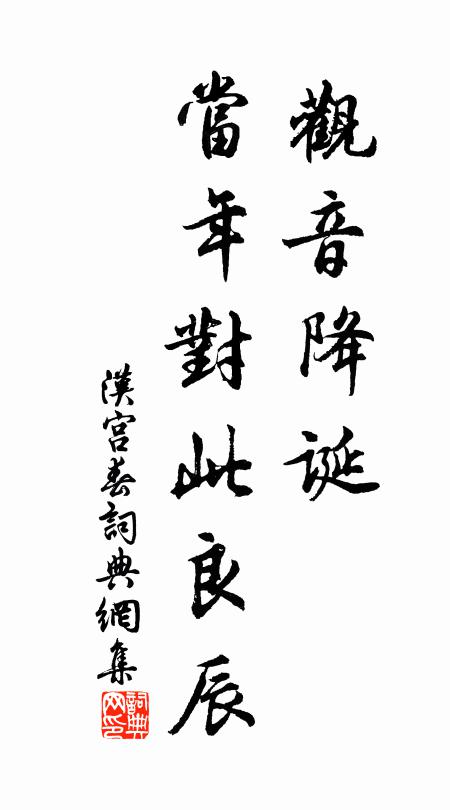 觀音降誕
當年對此良辰
漢宮春詞典網集
詞典网印